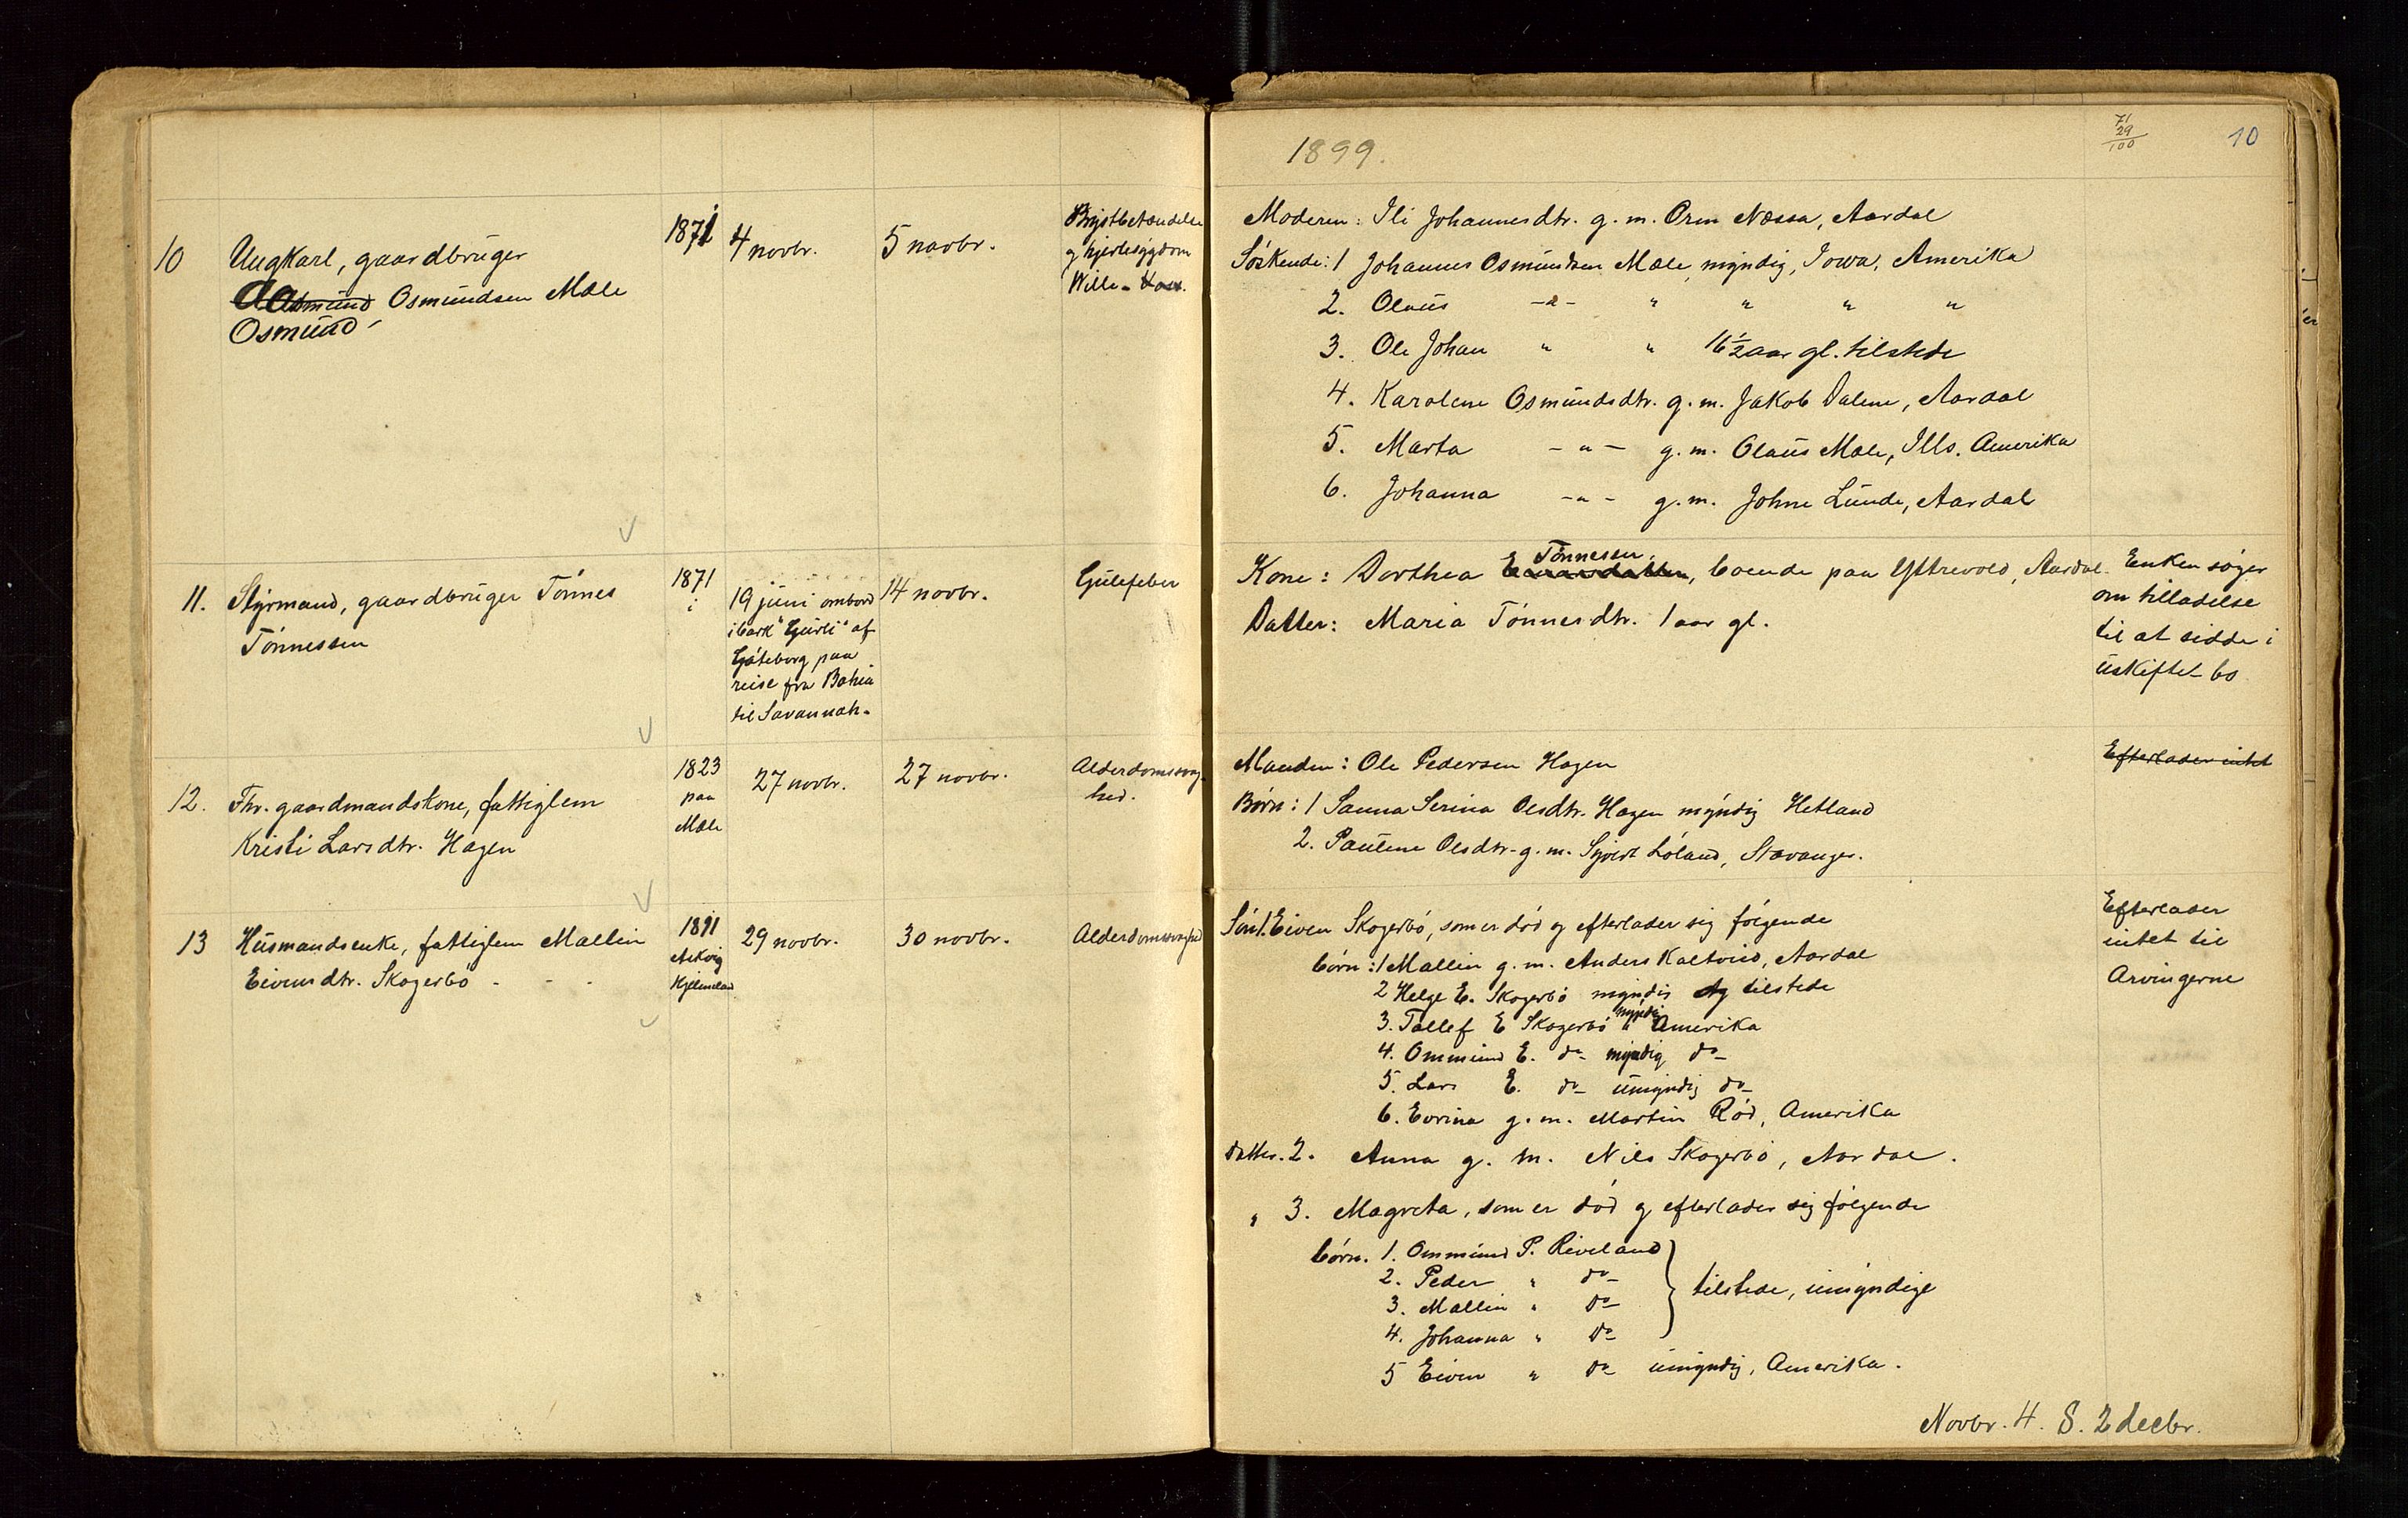 1899.
71
29
100
10
10
Ungkarl, gaardbruger
Osmund Osmundsen Mæle
Osmund
1871
4 novbr.
5 novbr.
Brystbetændelse
og hjertesygdom
Wille -
Moderen: Ili Johannesdtr. g. m. Orm Næssa, Aardal
Søskende: 1 Johannes Osmundsen Mæle, myndig, Iowa, Amerika
2. Olaus -"- " " " "
3. Ole Johan " " 16 1/2 aar gl. tilstede
4. Karolene Osmundsdtr. g. m. Jakob Dalene, Aardal
5. Marta -"- g. m. Olaus Mæle, Ills. Amerika
6. Johanna -"- g. m. Johne Lunde, Aardal
11.
Styrmand, gaardbruger Tønnes
Tønnessen
1871
i
19 juni ombord
i bark "Gurli" af
Gøteborg paa
reise fra Bahia
til Savannah.
14 novbr.
Gulefeber
Tønnessen,
Kone: Dorthea , boende paa Yttrevold, Aardal.
Datter: Maria Tønnesdtr. 1 aar gl.
Enken søger
om tilladelse
til at sidde i
uskiftet bo
12.
Fhr. gaardmandskone, fattiglem
Kristi Larsdtr. Hagen
1823
paa
Mæle
27 novbr.
27 novbr.
Alderdomssvag-
hed.
Manden: Ole Pedersen Hagen
Børn: 1 Sanna Serina Olsdtr. Hagen myndig Hetland
2. Pauline Olsdtr. g. m. Sjvert Løland, Stavanger.
Efterlader intet
13
Husmandsenke, fattiglem Mallin
Eivinsdtr. Skogerbø - - -
1811
Askvig
Hjelmeland
29 novbr.
30 novbr.
Alderdomssvaghed
Søn 1. Eiven Skogerbø, som er død og efterlader sig følgende
børn: 1 Mallin g. m. Anders Kaltveid, Aardal
2 Helge E. Skogerbø myndig tilstede
3. Tollef E Skogerbø myndig " Amerika
4. Ommund E. do myndig do
5. Lars E. do umyndig do
6. Evrina g. m. Martin Rød, Amerika
Datter. 2. Anna g. m. Nils Skogerbø, Aardal.
" 3. Magreta, som er død og efterlader sig følgende
børn. 1. Ommund P. Riveland
2. Peder " do
3. Mallin " do
tilstede, umyndige
4. Johanna " do
5 Eiven " do umyndig, Amerika.
Efterlader
intet til
Arvingerne
Novbr. 4. S. 2 decbr.